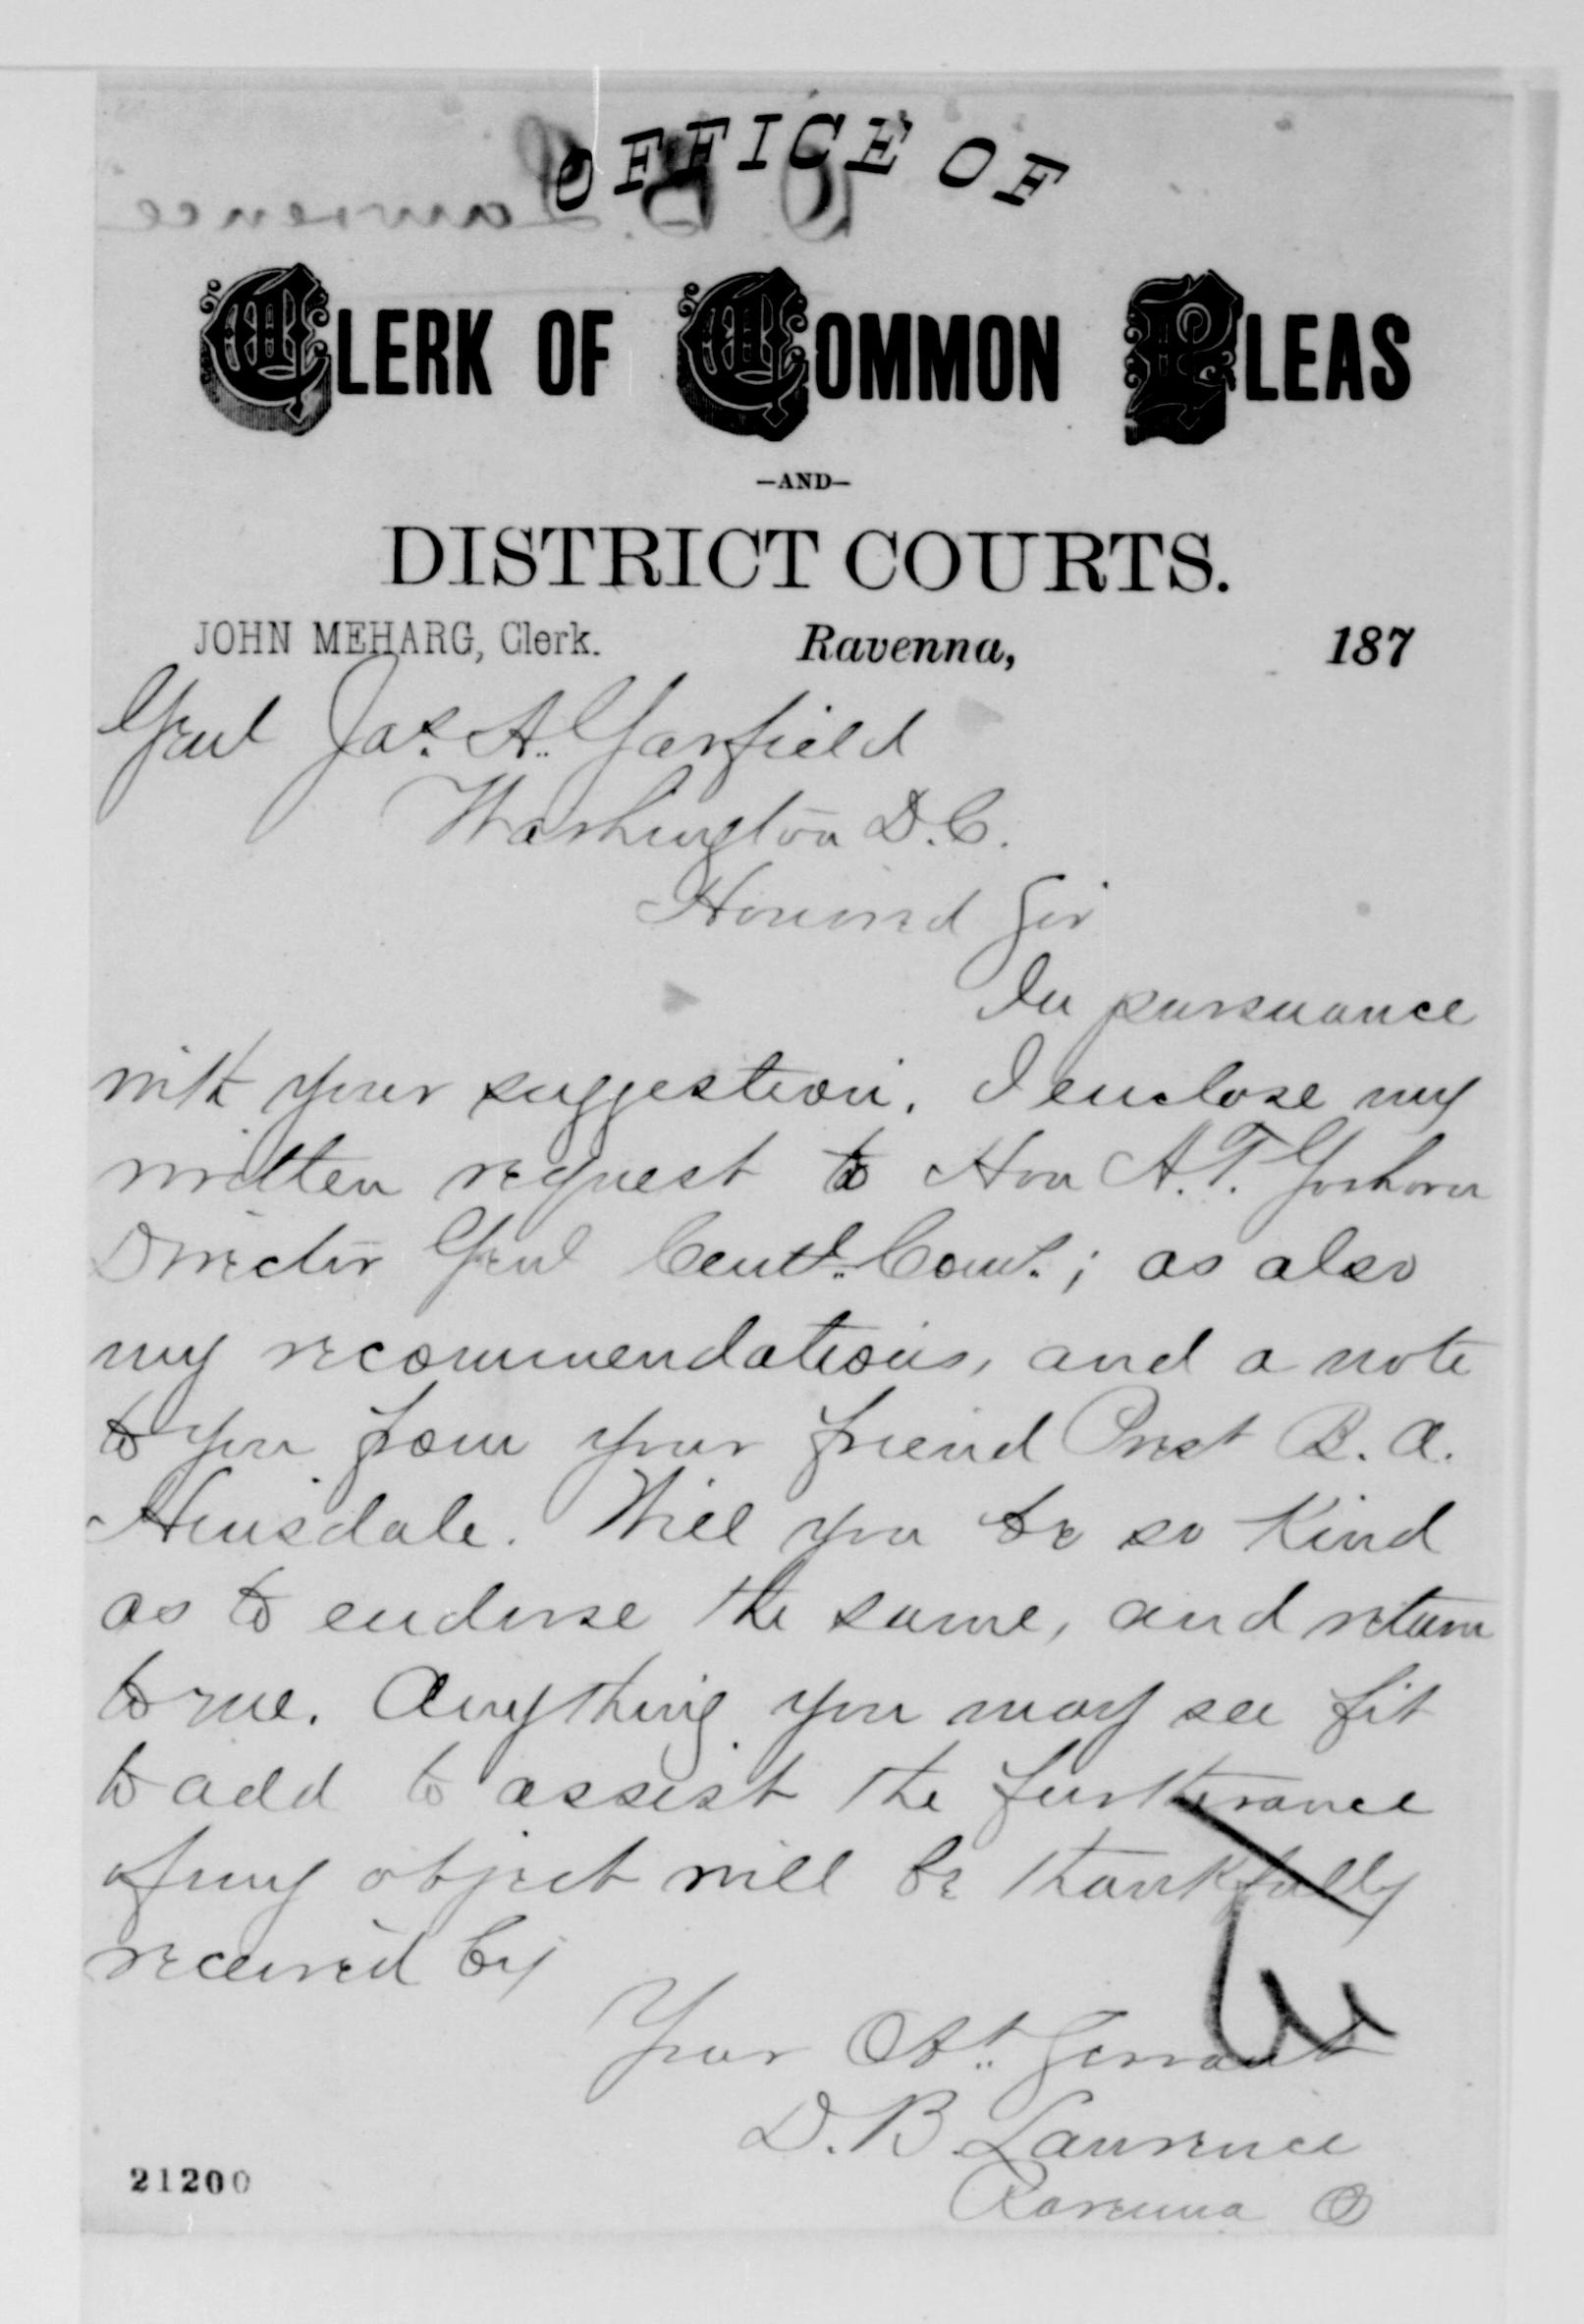 OFFICE OF
CLERK OF COMMON PLEAS
—AND—
DISTRICT COURTS.
JOHN MEHARG, Clerk. Ravenna, 187
Genl Jas. A. Garfield
Washington D.C.
Honored Sir
In pursuance
with your suggestion. I enclose my
written request to Hon A. T. Goshorn
Director Genl Centl. Com.; as also
my recommendations, and a note
to you from your friend Prest B. A.
Hinsdale. Will you be so kind
as to endorse the same, and return
to me. Anything you may see fit
to add to assist the furtherance
of my object will be thankfully
received by
Your Obt. Servant
D. B. Lawrence
Ravenna O
21200